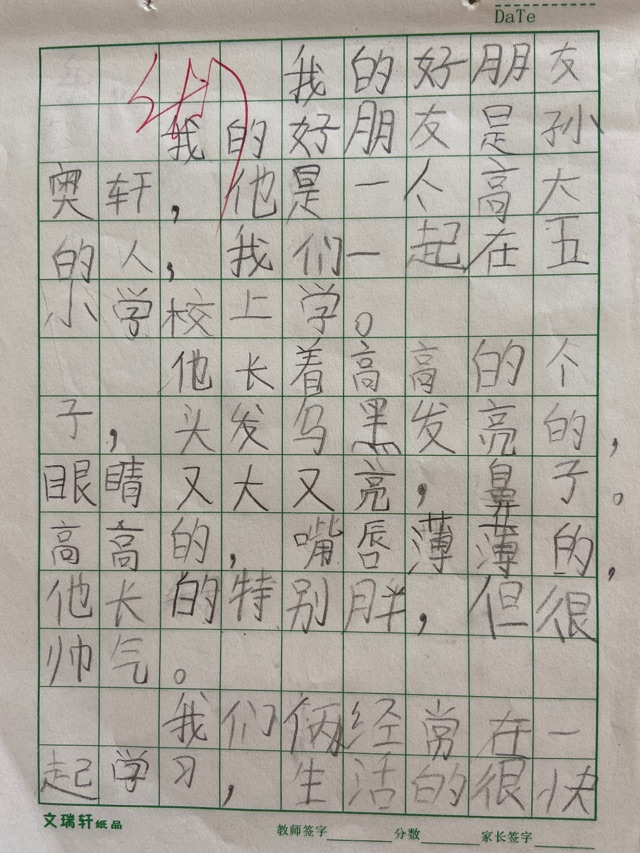 DaTe
我的好朋友
我的好朋友是孙
奥轩，他是一个高大
的人，我们一起在五
小学校上学。
他长着高高的个
子，头发乌黑发亮的，
眼睛又大又亮，鼻子。
高高的，嘴唇薄薄的，
他长的特别胖，但很
帅气。
我们俩经常在一
起学习，生活的很快
文瑞轩纸品 教师签字 分数 家长签字